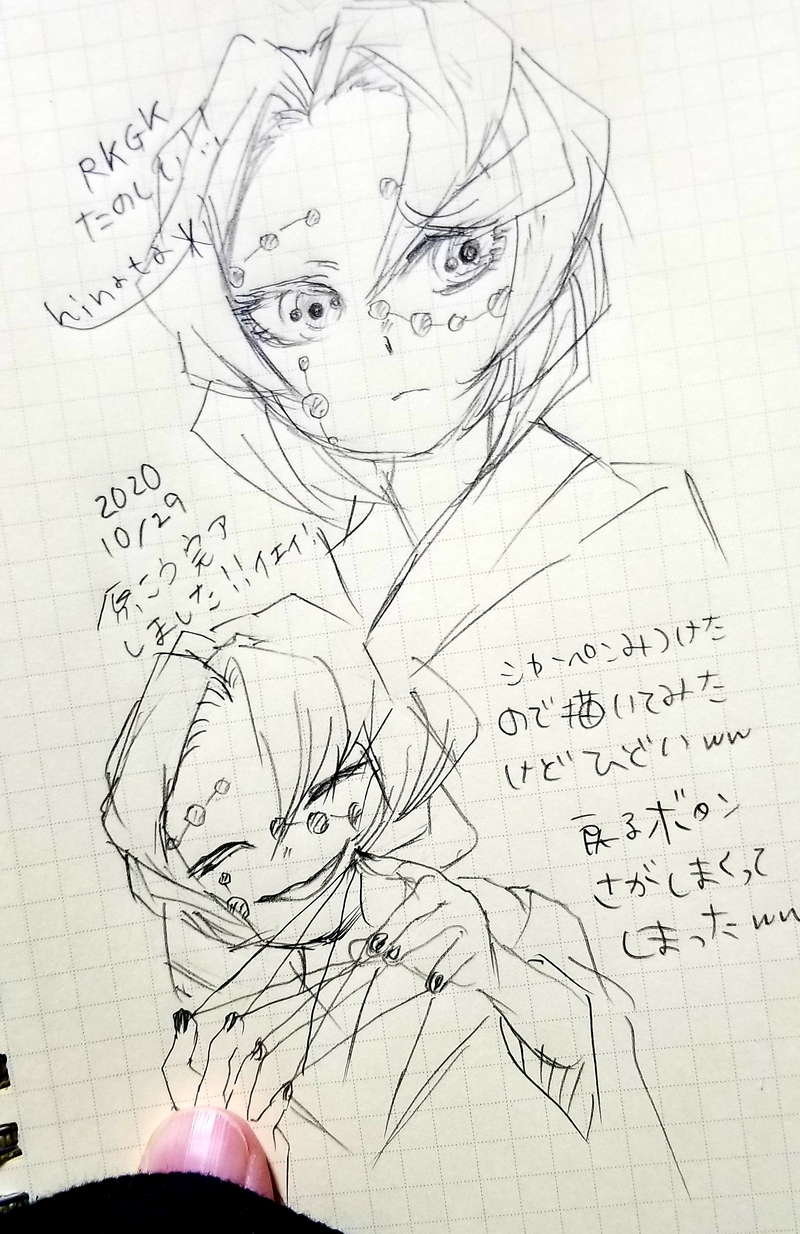 RKGK
たのしい!!
hinata
2020
10/29
原こう完了
しました!!イエイ!!
シャーペンみつけた
ので描いてみた
けどひどいww
戻るボタン
さがしまくって
しまったww